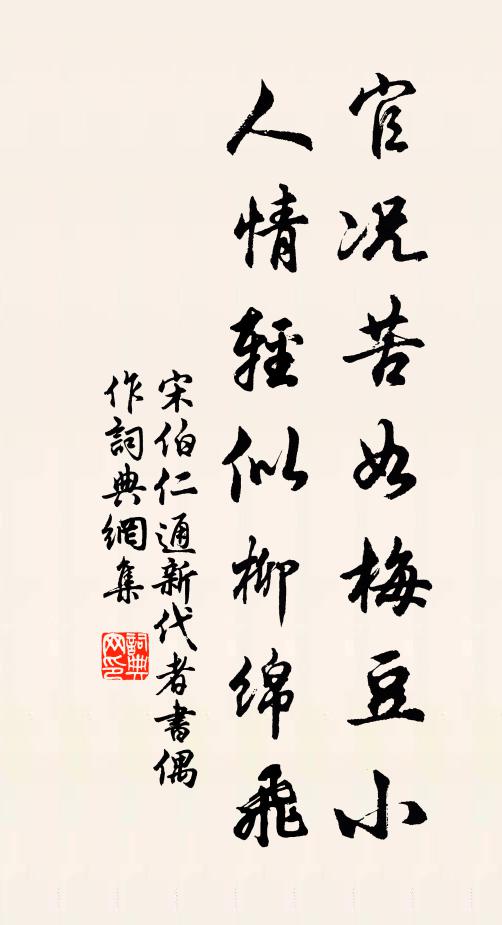 官况苦如梅豆小
人情輕似柳綿飛
宋伯仁通新代者書偶
作詞典網集
詞典
网印